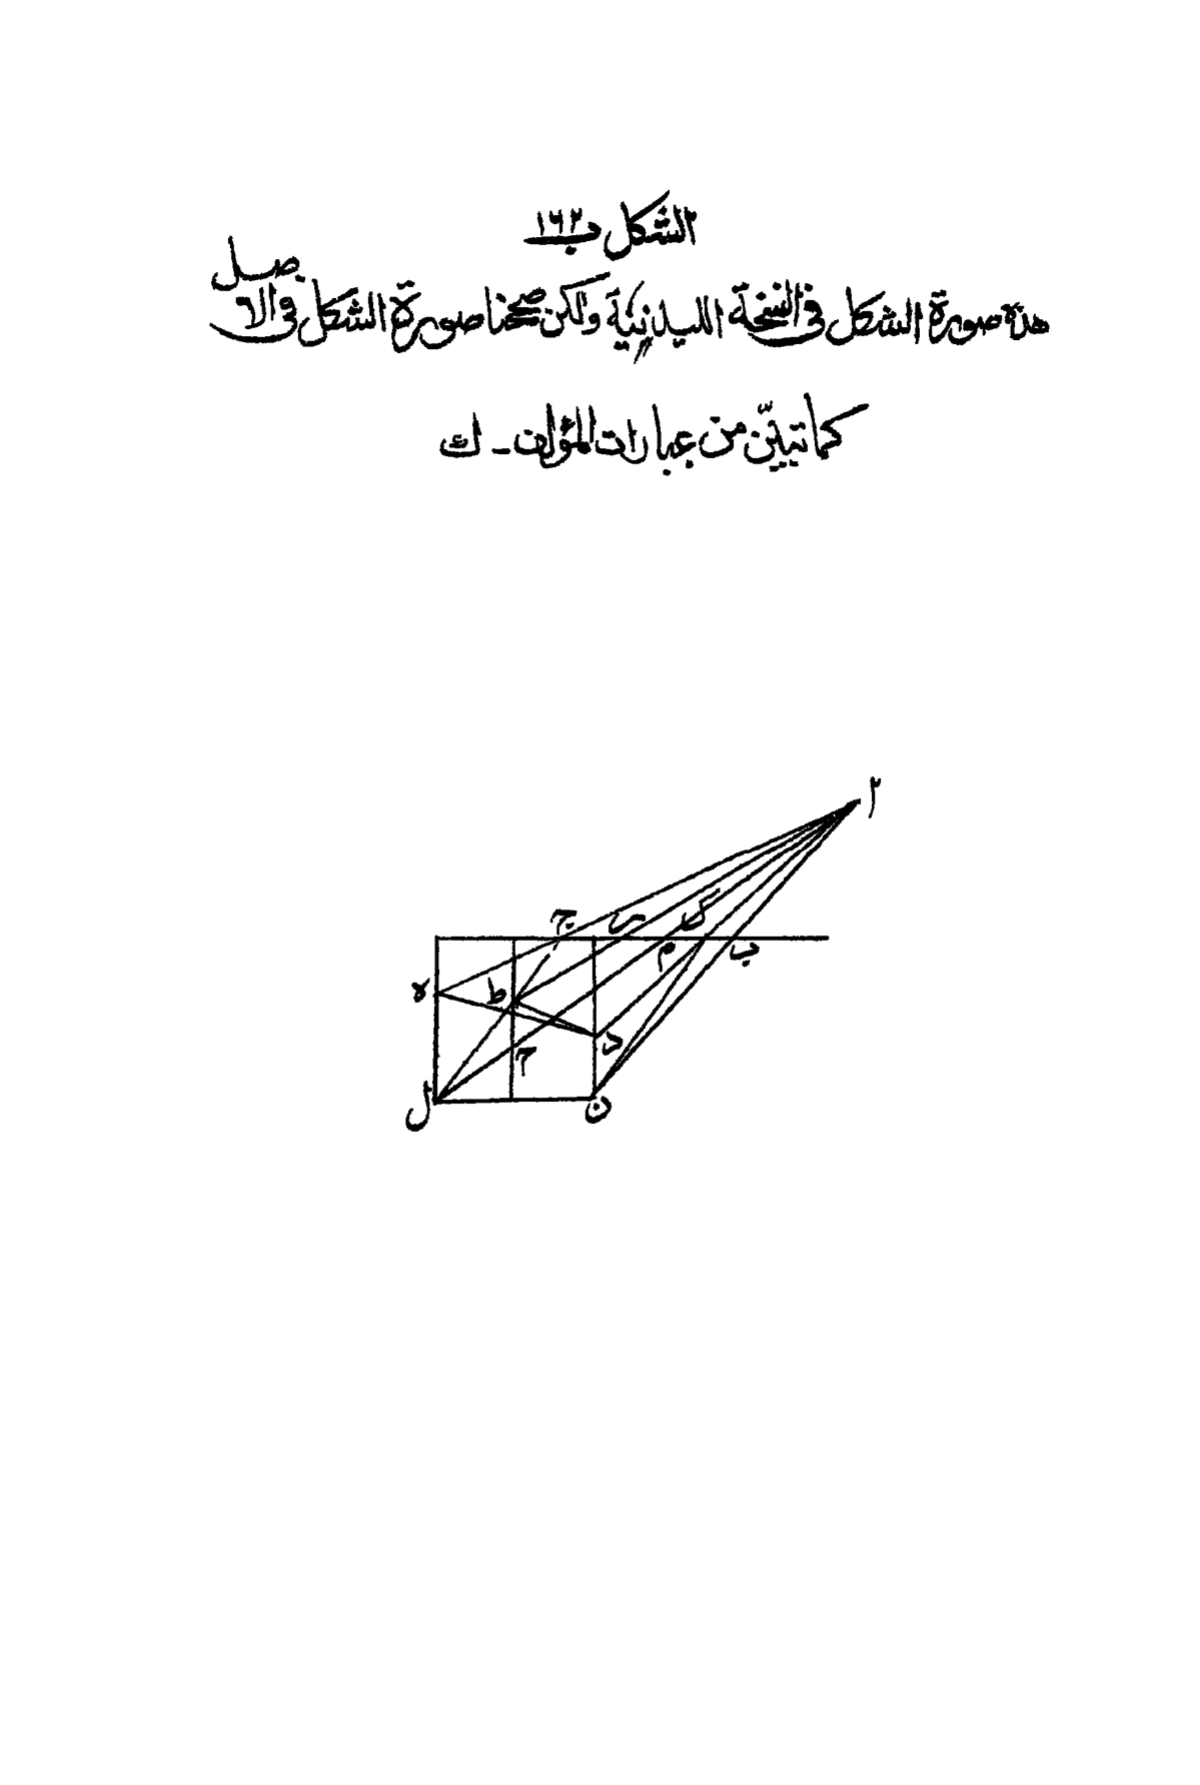 الشكل ب ١٦٢
هذه صورة الشكل في النسخة الليدنية ولكن صححنا صورة الشكل في الاصل
كما تبيّن من عبارات المؤلف - ك
ا
ج
ر
ك
م
ب
ه
ط
د
ح
ل
ن